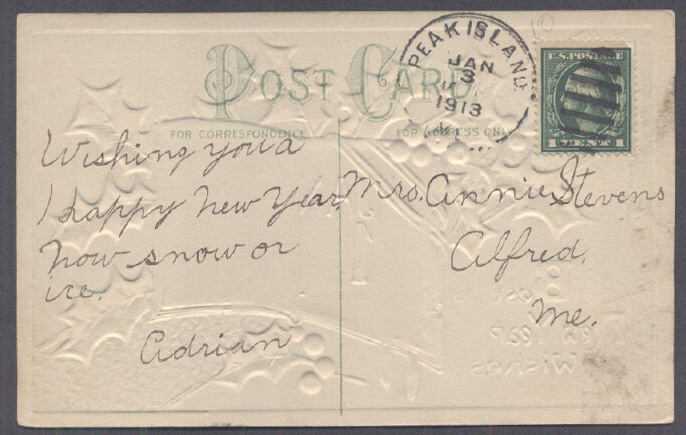 POST CARD
FOR CORRESPONDENCE
FOR ADDRESS ONLY
PEAK ISLAND
JAN
3
1913
U.S. POSTAGE
1 CENT 1
10
Wishing you a
happy New Year,
now snow or
ice.
Adrian
Mrs. Annie Stevens
Alfred.
Me.
Best
New Year
Wishes